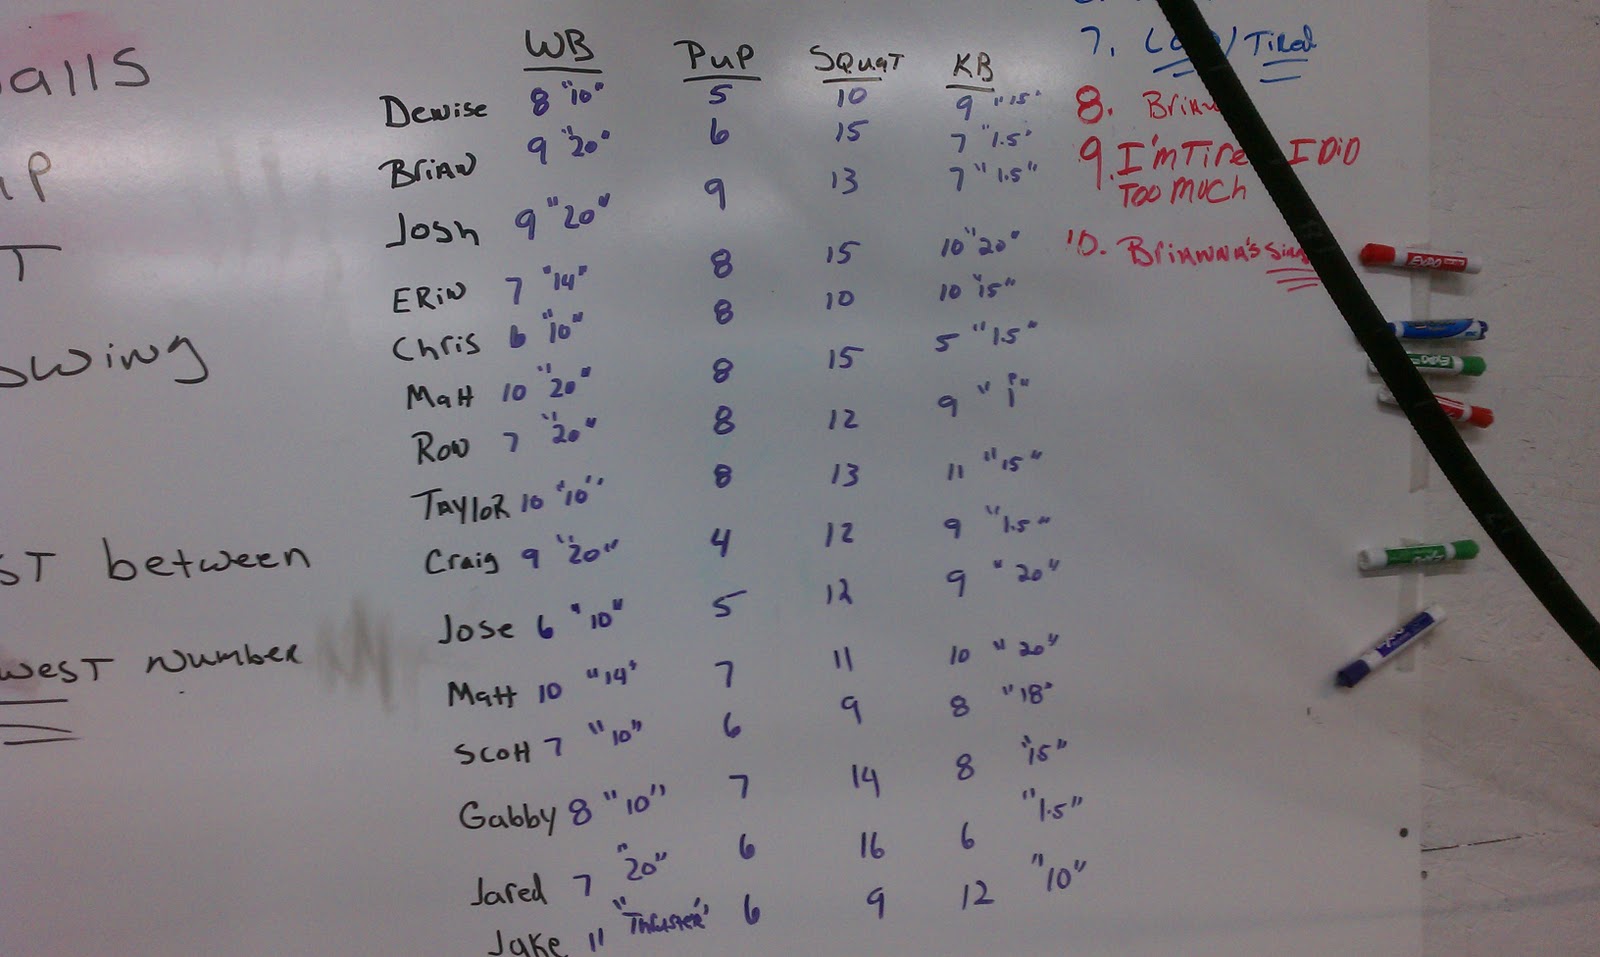 WB PUP SQUAT KB
Denise 8 "10" 5 10 9 "15"
Brian 9 "20" 6 15 7 "1.5"
Josh 9 "20" 9 13 7 "1.5"
Erin 7 "14" 8 15 10 "20"
Chris 6 "10" 8 10 10 "15"
Matt 10 "20" 8 15 5 "1.5"
Ron 7 "20" 8 12 9 "
Taylor 10 "10" 8 13 11 "15"
Craig 9 "20" 4 12 9 "1.5"
Jose 6 "10" 5 12 9 "20"
Matt 10 "14" 7 11 10 "20"
Scott 7 "10" 6 9 8 "18"
Gabby 8 "10" 7 14 8 "15"
Jared 7 "20" 6 16 6 "1.5"
Jake 11 "Thruster" 6 9 12 "10"
alls
P
T
wing
ST between
west number
7. / Tired
8.
9. I'm Tired I DID
Too much
10. Brianna's
EXPO
EXPO